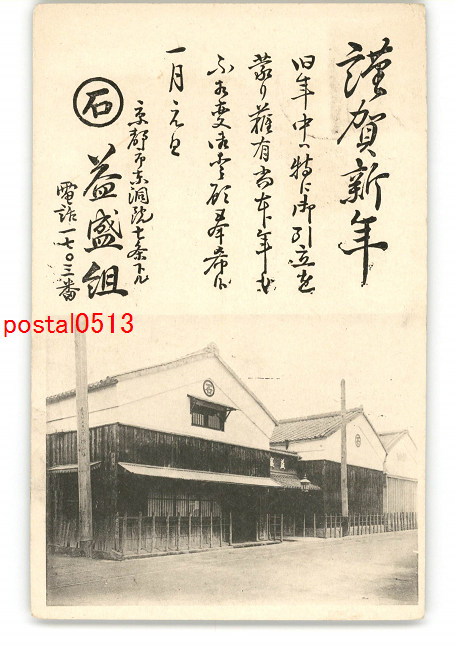 謹賀新年
旧年中ハ特に御引立を
蒙り難有尚本年も
不相変御愛顧奉希候
一月元旦
京都市東洞院七条下ル
石 益盛組
電話一七〇三番
postal0513
石